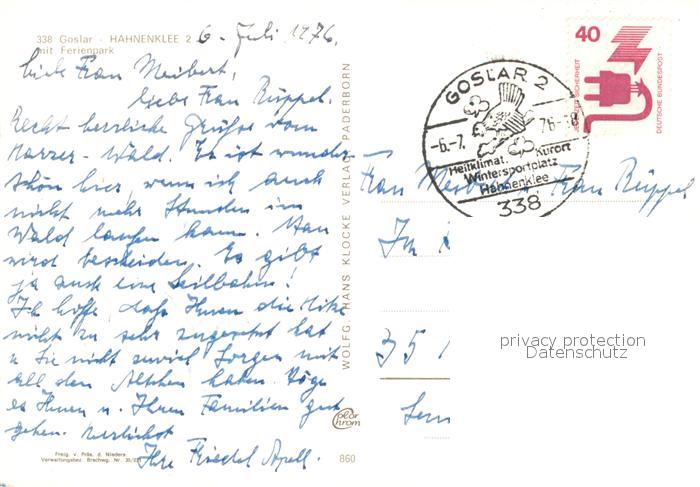 338 Goslar - HAHNENKLEE 2
mit Ferienpark
6. Juli 1976.
Liebe Frau Meibert,
liebe Frau Rüppel.
Recht herrliche Grüße vom
Harzer-Wald. Es ist wunder-
schön hier, wenn ich auch
nicht mehr Stunden im
Wald laufen kann. Man
wird bescheiden. Es gibt
ja auch eine Seilbahn!
Ich hoffe, daß Ihnen die Hitze
nicht zu sehr zugesetzt hat
u. Sie nicht zuviel Sorgen mit
all den Altchen haben. Möge
es Ihnen u. Ihren Familien gut
gehen. Herzlichst
Ihre Friedel Apell.
Freig. v. Präs. d. Nieders.
Verwaltungsbez. Brschwg. Nr.
WOLFG. HANS KLOCKE VERLAG PADERBORN
Color
chrom
860
GOSLAR 2
-6.-7. 76-
Heilklimat. Kurort
Wintersportplatz
Hahnenklee
338
40
SICHERHEIT
DEUTSCHE BUNDESPOST
Frau Frau Rüppel
35
privacy protection
Datenschutz